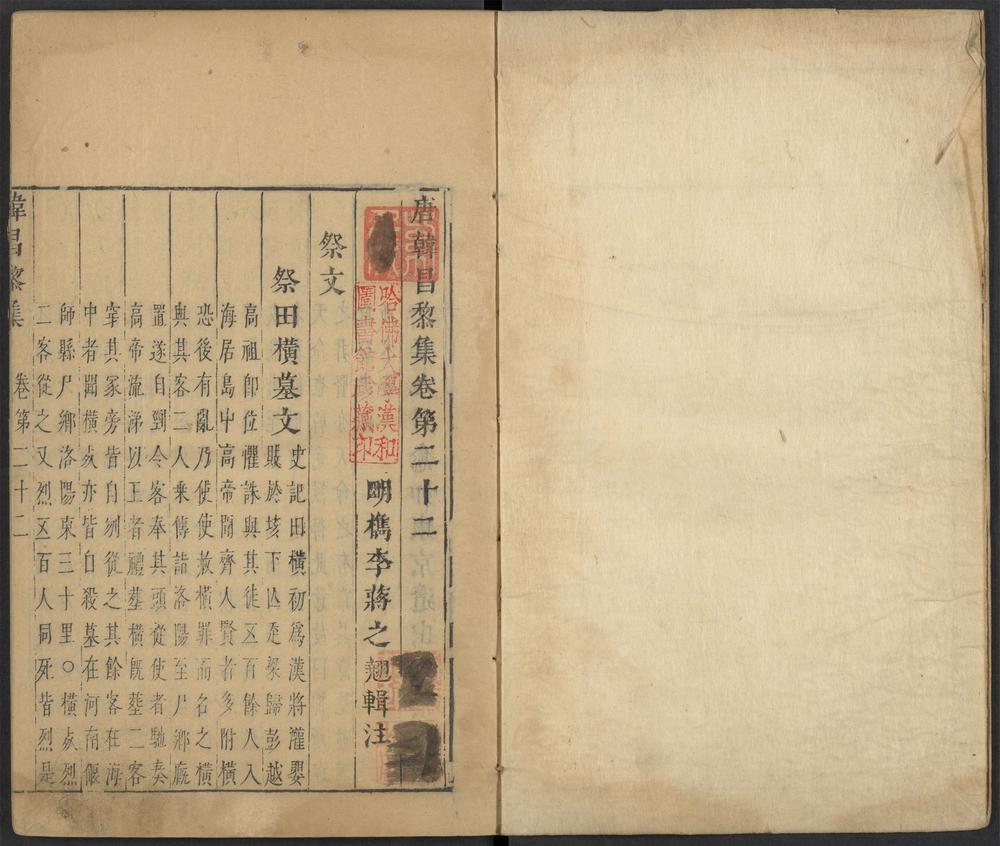 唐韓昌黎集卷第二十二
明檇李蔣之翹輯注
哈佛大學漢和
圖書館珍藏印
祭文
祭田橫墓文
史記田橫初爲漢將灌嬰
敗於垓下亡走梁歸彭越
高祖卽位懼誅與其徒五百餘人入
海居島中高帝聞齊人賢者多附橫
恐後有亂乃使使赦橫罪而召之橫
與其客二人乘傳詣洛陽至尸鄉廄
置遂自剄令客奉其頭從使者馳奏
高帝流涕以王者禮塟橫既塟二客
穿其冢旁皆自剄從之其餘客在海
中者聞橫死亦皆自殺墓在河南偃
師縣尸鄉洛陽東三十里○橫死烈
二客從之又烈五百人同死皆烈是
韓昌黎集
卷第二十二